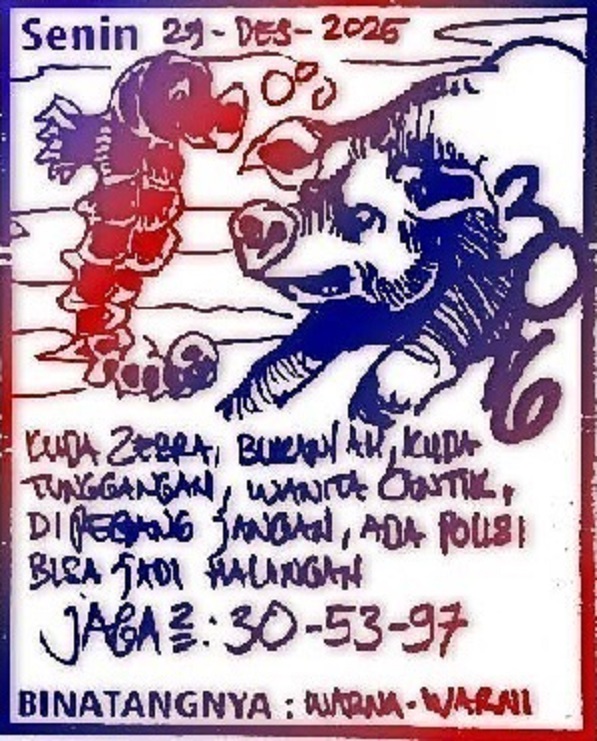 Senin 29-DES-2025
3
0
6
KUDA ZEBRA, BUKANLAH, KUDA
TUNGGANGAN, WANITA CANTIK,
DIPEGANG JANGAN, ADA POLISI
BISA JADI HALANGAN
JAGA2: 30-53-97
BINATANGNYA : WARNA-WARNI